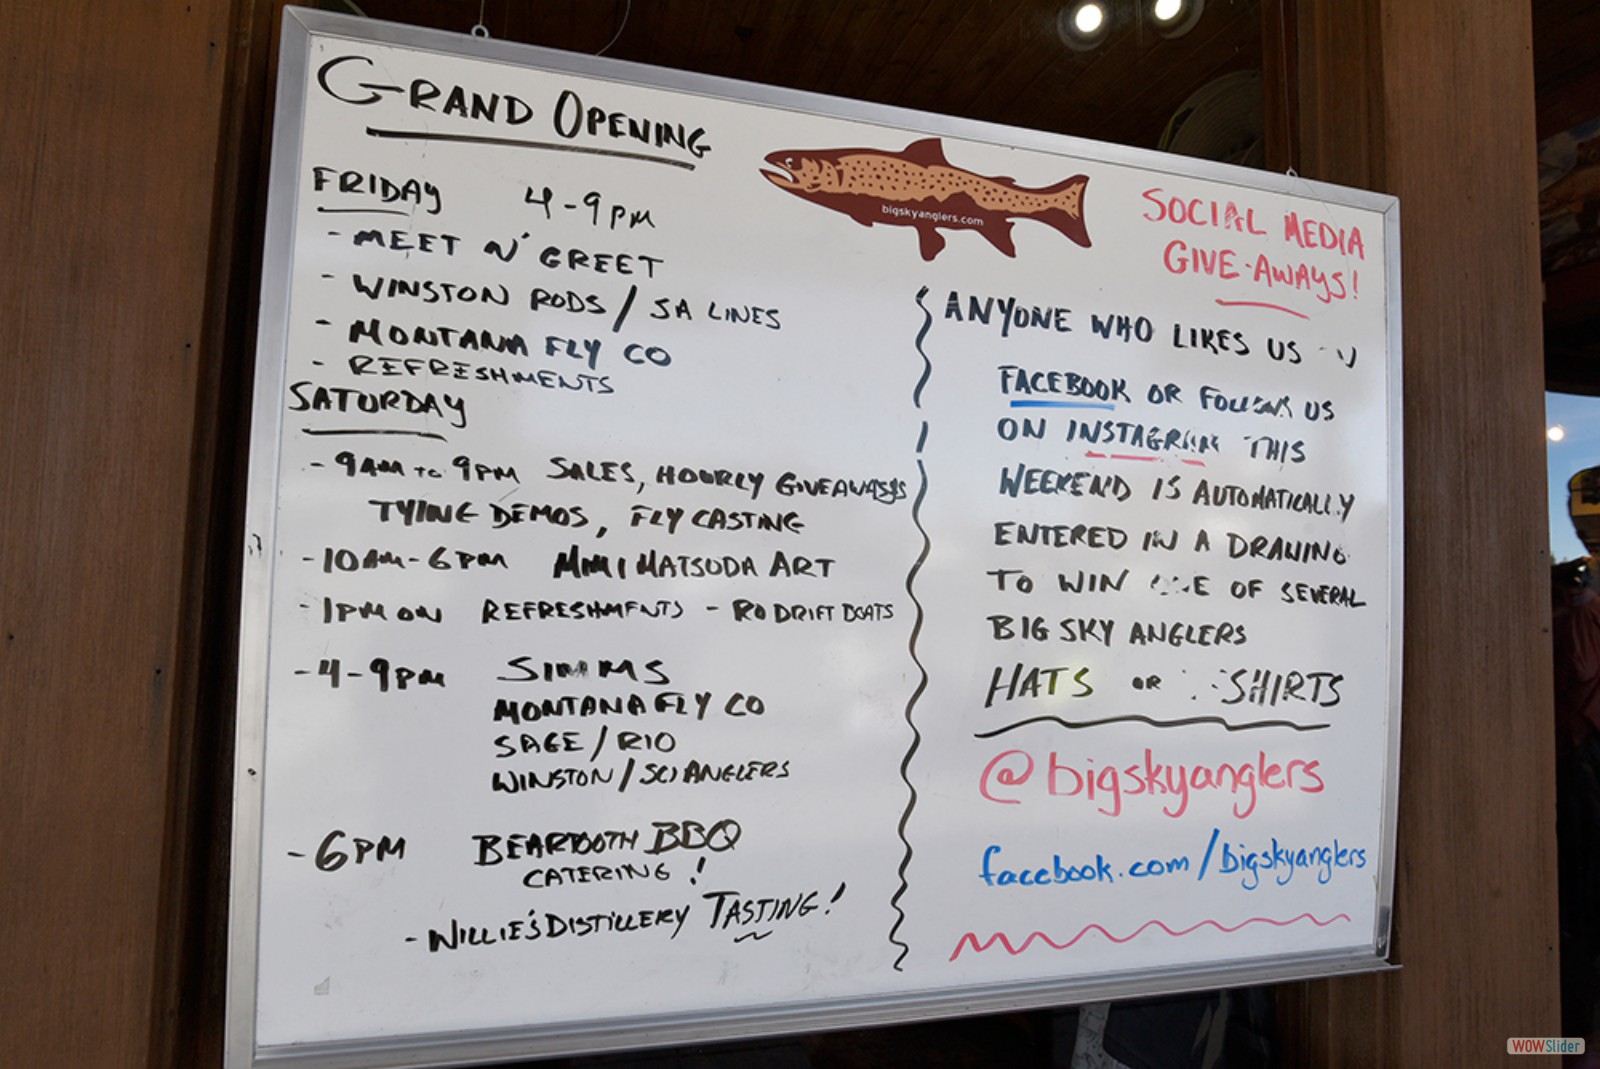 GRAND OPENING
FRIDAY 4-9PM
- MEET N' GREET
- WINSTON RODS / SA LINES
- MONTANA FLY CO
- REFRESHMENTS
SATURDAY
- 9AM to 9PM SALES, HOURLY GIVEAWAYS
TYING DEMOS, FLY CASTING
- 10AM-6PM MIMI MATSUDA ART
- 1PM ON REFRESHMENTS - RO DRIFT BOATS
- 4-9PM SIMMS
MONTANA FLY CO
SAGE / RIO
WINSTON / SCI ANGLERS
- 6PM BEARTOOTH BBQ
CATERING!
- WILLIE'S DISTILLERY TASTING!
bigskyanglers.com
SOCIAL MEDIA
GIVE-AWAYS!
ANYONE WHO LIKES US
FACEBOOK OR FOLLOWS US
ON INSTAGRAM THIS
WEEKEND IS AUTOMATICALLY
ENTERED IN A DRAWING
TO WIN ONE OF SEVERAL
BIG SKY ANGLERS
HATS OR SHIRTS
@bigskyanglers
facebook.com/bigskyanglers
WOWSlider